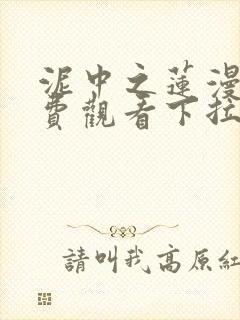 泥中之蓮漫
費觀看下拉
請叫我高原紅